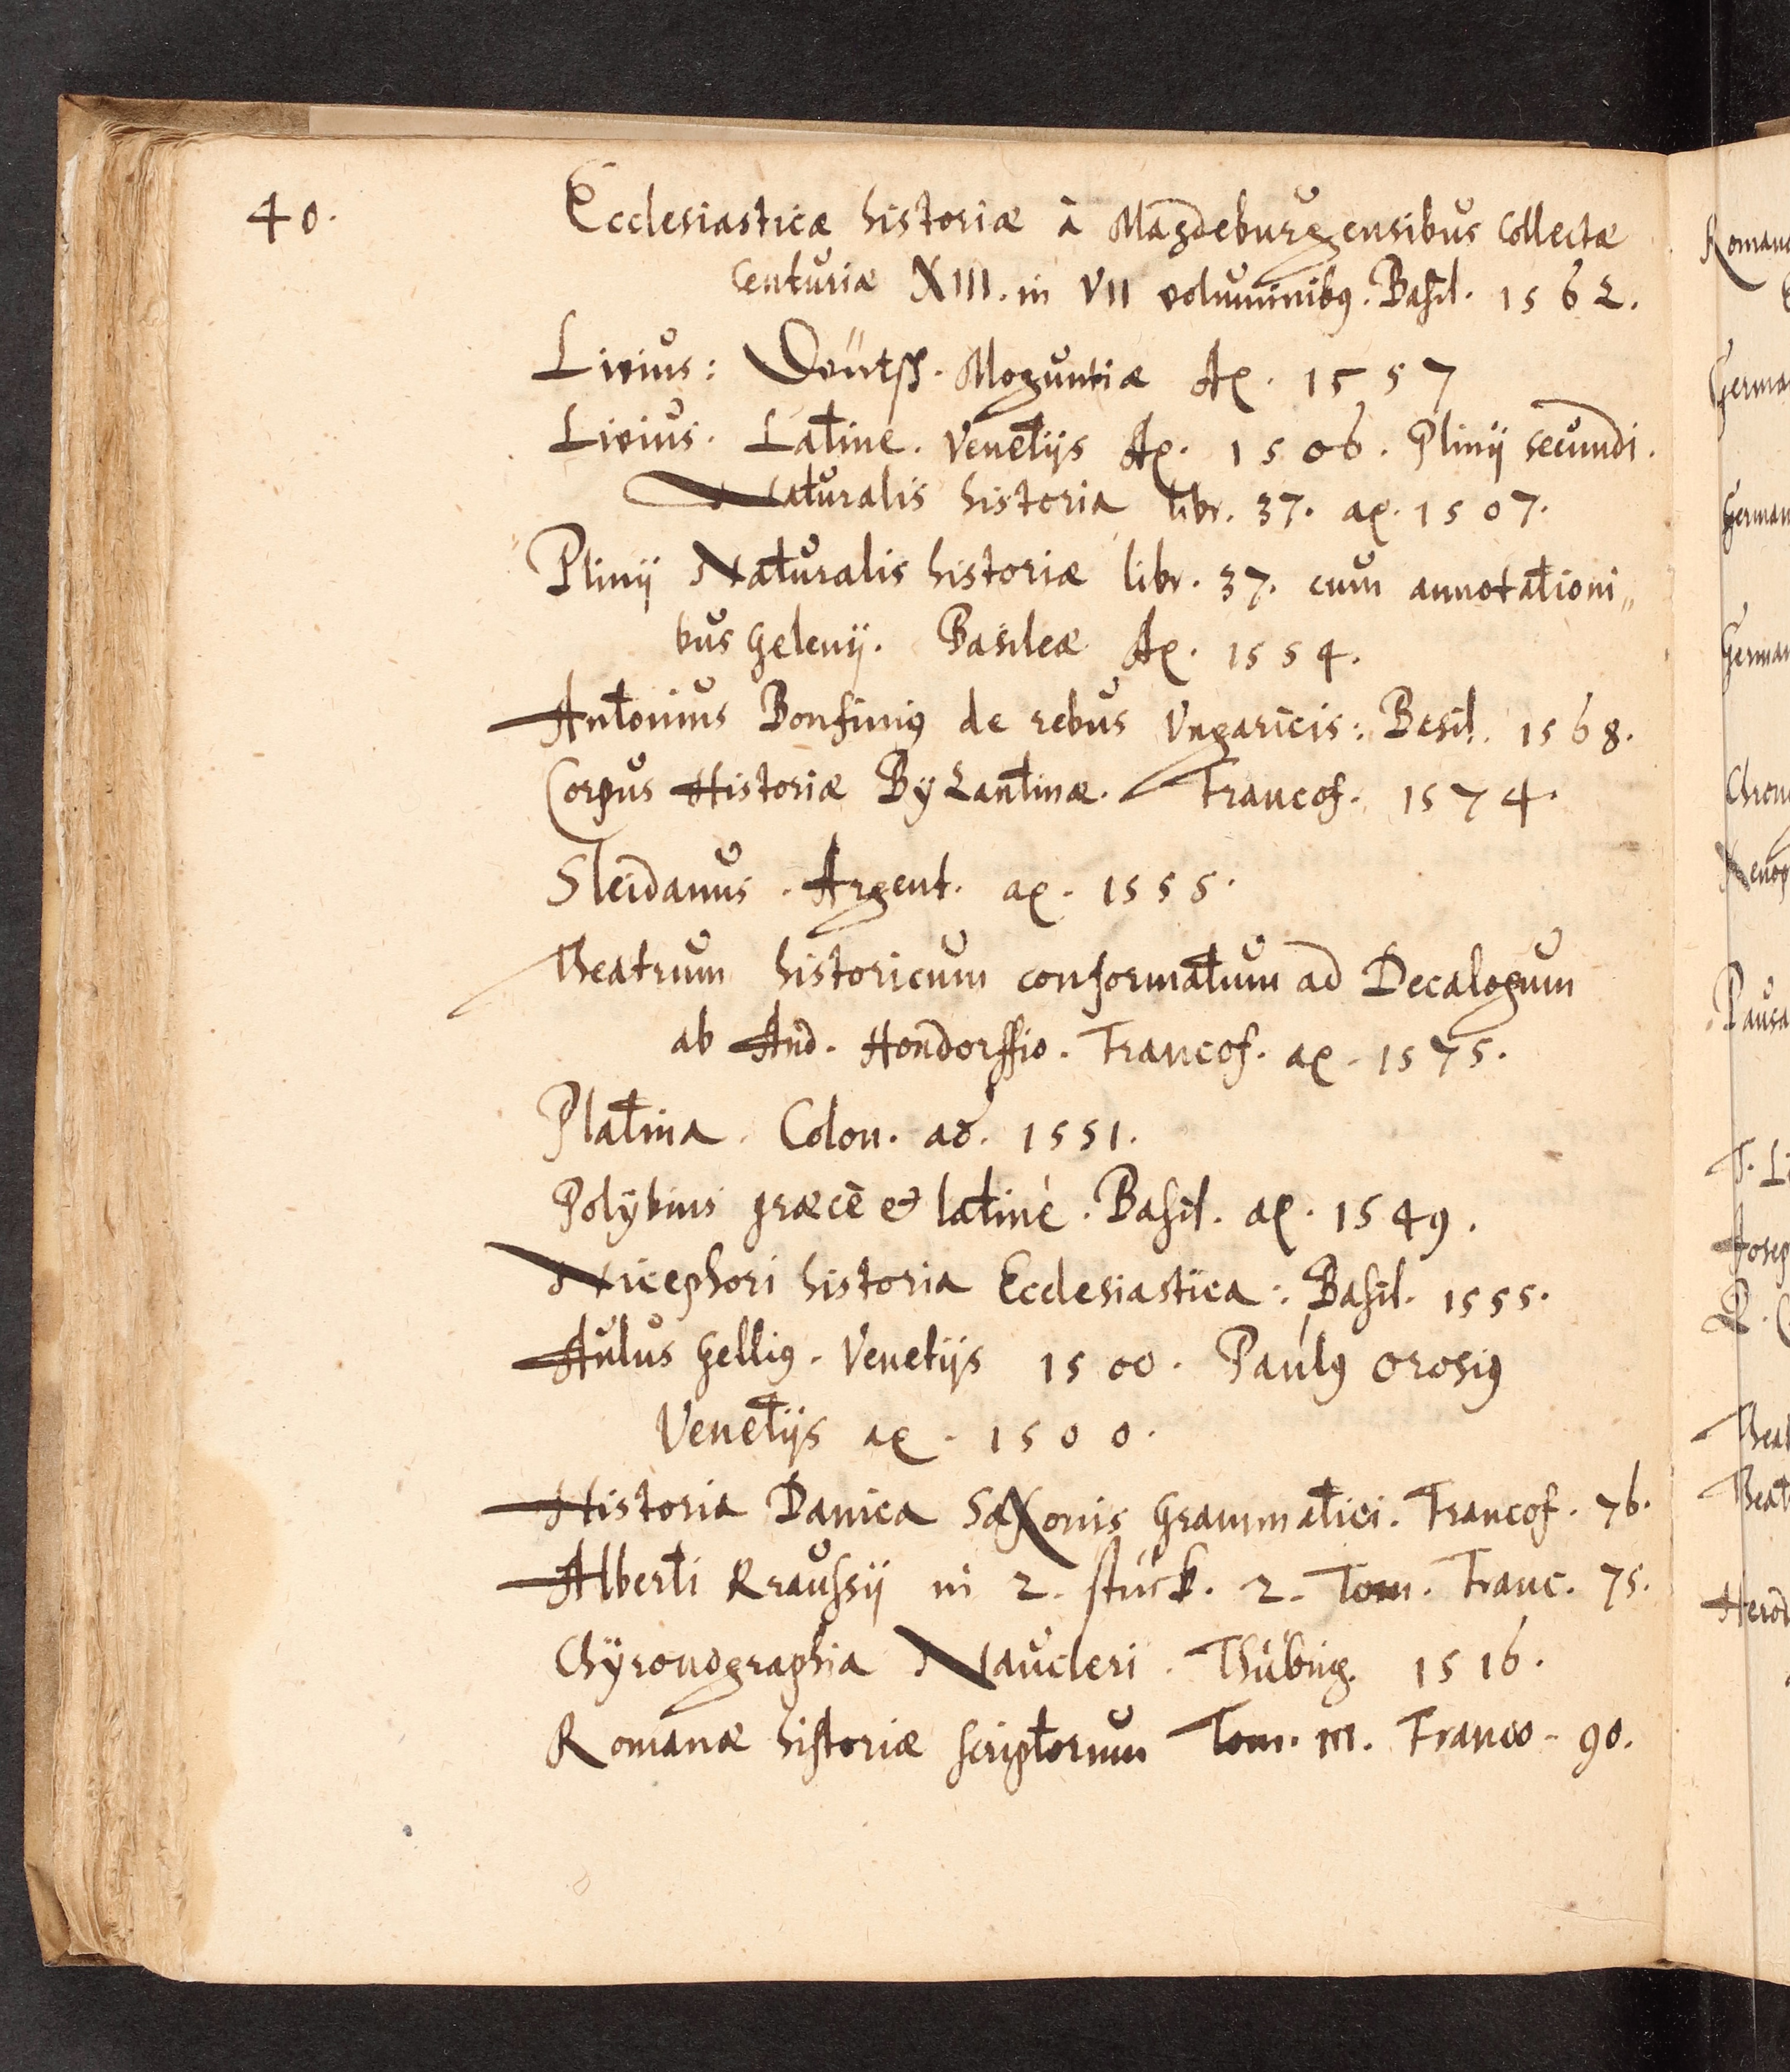 40.
Ecclesiasticæ historiæ à Magdeburgensibus collectæ
Centuriæ XIII. in VII voluminibꝰ. Basil. 1562.
Livius: Deütsch. Moguntiæ Aō. 1557
Livius. Latine. Venetijs Aō. 1506. Plinij secundi.
Naturalis historia libr. 37. aō. 1507.
Plinij Naturalis historiæ libr. 37. cum annotationi„
bus Gelenij. Basileæ Aō. 1554.
Antonius Bonfiniꝰ de rebus Vngaricis: Besil. 1568.
Corpus Historiæ Byzantinæ. Francof. 1574.
Sleidanus. Argent. aō. 1555.
Theatrum historicum conformatum ad Decalogum
ab And. Hondorffio. Francof. aō. 1575.
Platina. Colon. ao. 1551.
Polybius græcè et latinè. Basil. aō. 1549.
Nicephori historia Ecclesiastica: Basil. 1555.
Aulus Gelliꝰ. Venetijs 1500. Paulꝰ Orosiꝰ
Venetijs aō. 1500.
Historia Danica Saxonis Grammatici. Francof. 76.
Alberti Kraussij in 2. stuck. 2. Tom. Franc. 75.
Chyronographia Naucleri. Thübing. 1516.
Romanæ historiæ scriptorum Tom. III. Franco. 90.